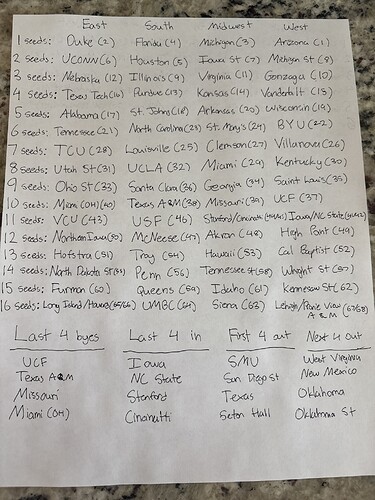 East South Midwest West
1 seeds: Duke (2) Florida (4) Michigan (3) Arizona (1)
2 seeds: UCONN (6) Houston (5) Iowa St (7) Michigan St (8)
3 seeds: Nebraska (12) Illinois (9) Virginia (11) Gonzaga (10)
4 seeds: Texas Tech (16) Purdue (13) Kansas (14) Vanderbilt (15)
5 seeds: Alabama (17) St. Johns (18) Arkansas (20) Wisconsin (19)
6 seeds: Tennessee (21) North Carolina (23) St. Mary's (24) BYU (22)
7 seeds: TCU (28) Louisville (25) Clemson (27) Villanova (26)
8 seeds: Utah St (31) UCLA (32) Miami (29) Kentucky (30)
9 seeds: Ohio St (33) Santa Clara (36) Georgia (34) Saint Louis (35)
10 seeds: Miami (OH) (40) Texas A&M (38) Missouri (39) UCF (37)
11 seeds: VCU (43) USF (46) Stanford/Cincinatti Iowa/NC State
12 seeds: Northern Iowa (50) McNeese (47) Akron (48) High Point (49)
13 seeds: Hofstra (51) Troy (54) Hawaii (53) Cal Baptist (52)
14 seeds: North Dakota St Penn (56) Tennessee St (58) Wright St (57)
15 seeds: Furman (60) Queens (59) Idaho (61) Kennesaw St (62)
16 seeds: Long Island/Howard (65/66) UMBC (64) Siena (63) Lehigh/Prairie View A&M (67/68)
Last 4 byes Last 4 in First 4 out Next 4 out
UCF Iowa SMU West Virginia
Texas A&M NC State San Diego St New Mexico
Missouri Stanford Texas Oklahoma
Miami (OH) Cinainatti Seton Hall Oklahoma St